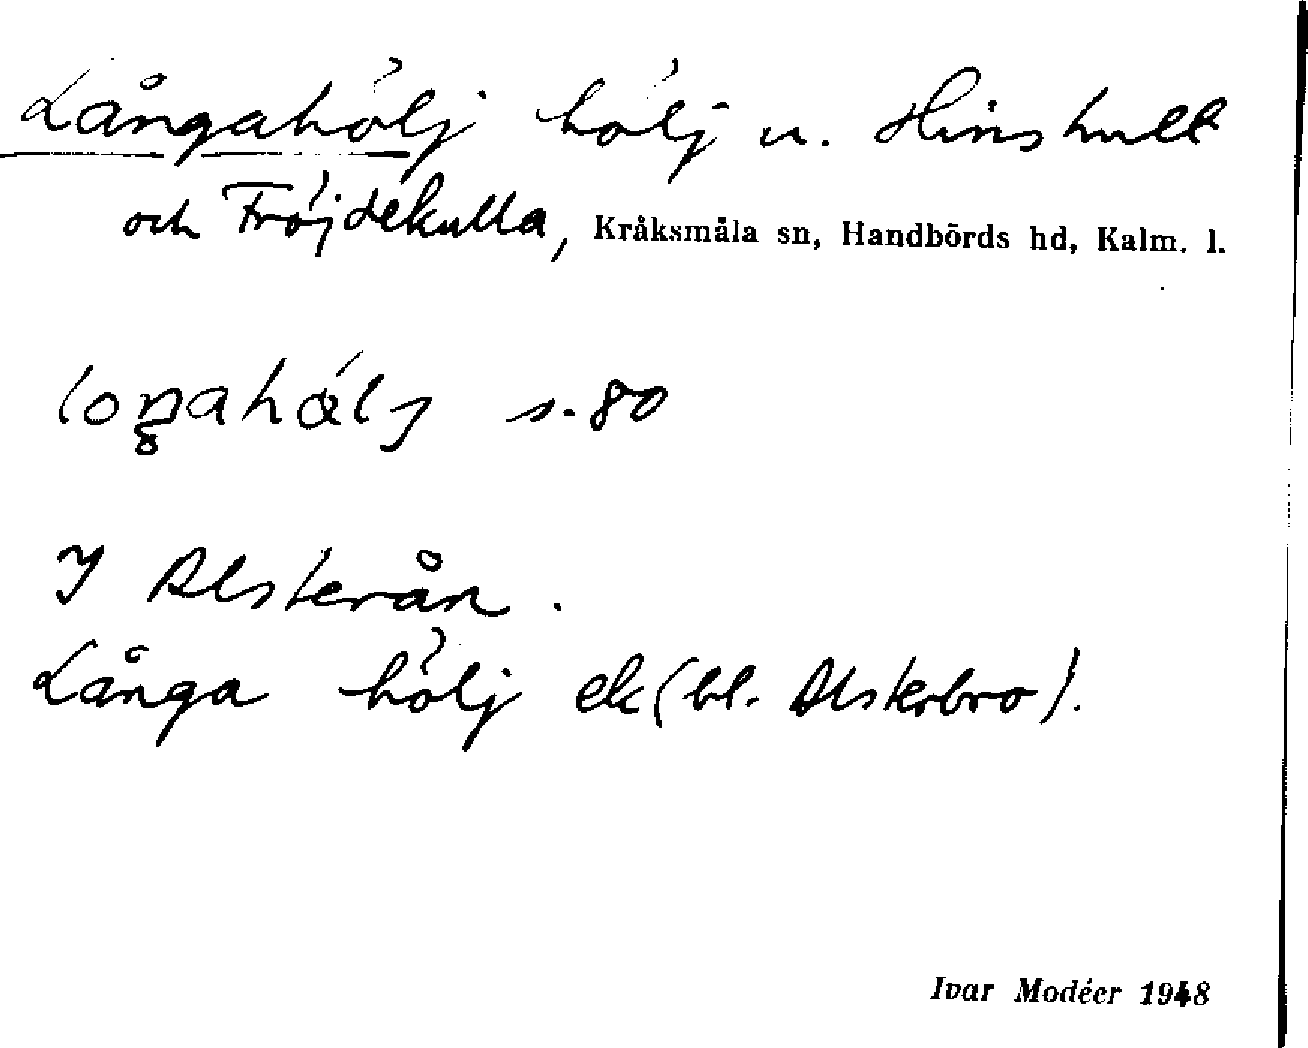 Långahölj hölj u. Hinshult
och Fröjdekulla, Kråksmåla sn, Handbörds hd, Kalm. l.
loŋahálj s. 80
I Alsterån.
Långa hölj ek (bl. Alsterbro).
Ivar Modéer 1948